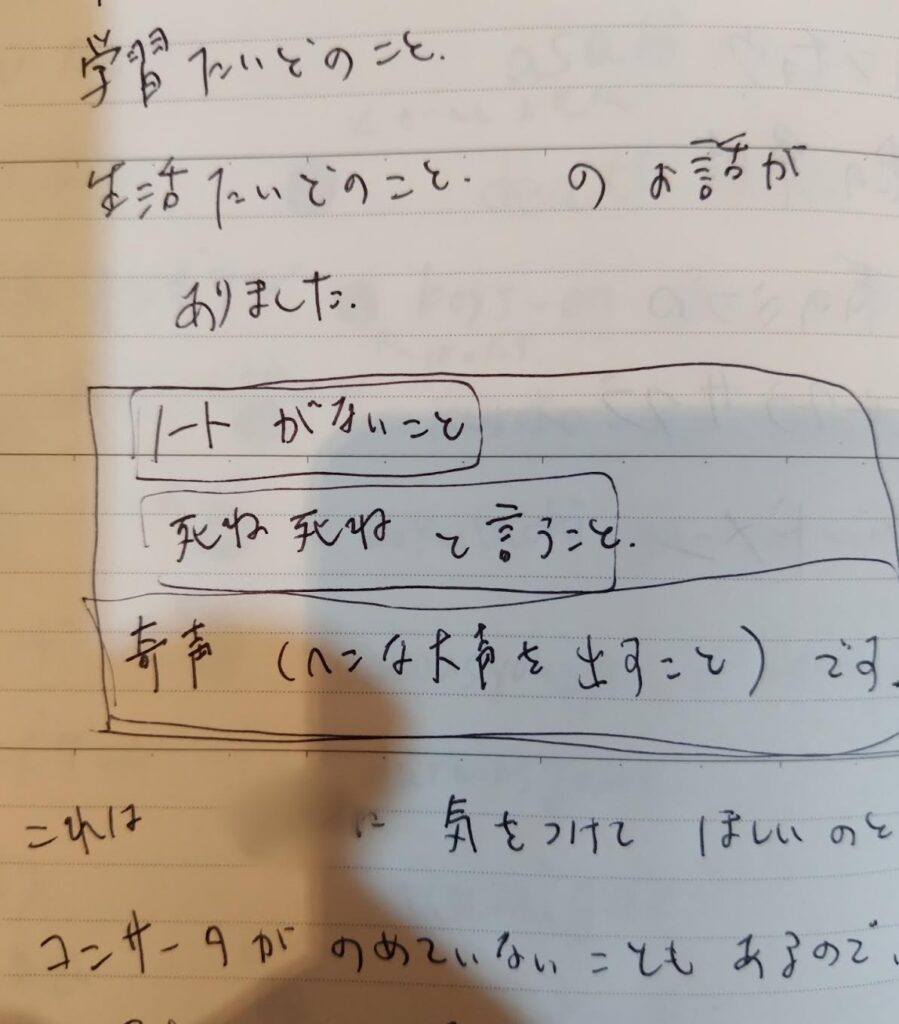 学習たいどのこと.
生活たいどのこと. のお話が
ありました.
ノートがないこと
死ね死ねと言うこと.
奇声 (へんな大声を出すこと) です.
これは に気をつけてほしいのと
コンサータがのめていないこともあるので、